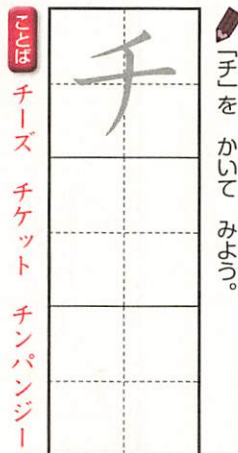 「チ」を かいて みよう。
チ
ことば チーズ チケット チンパンジー